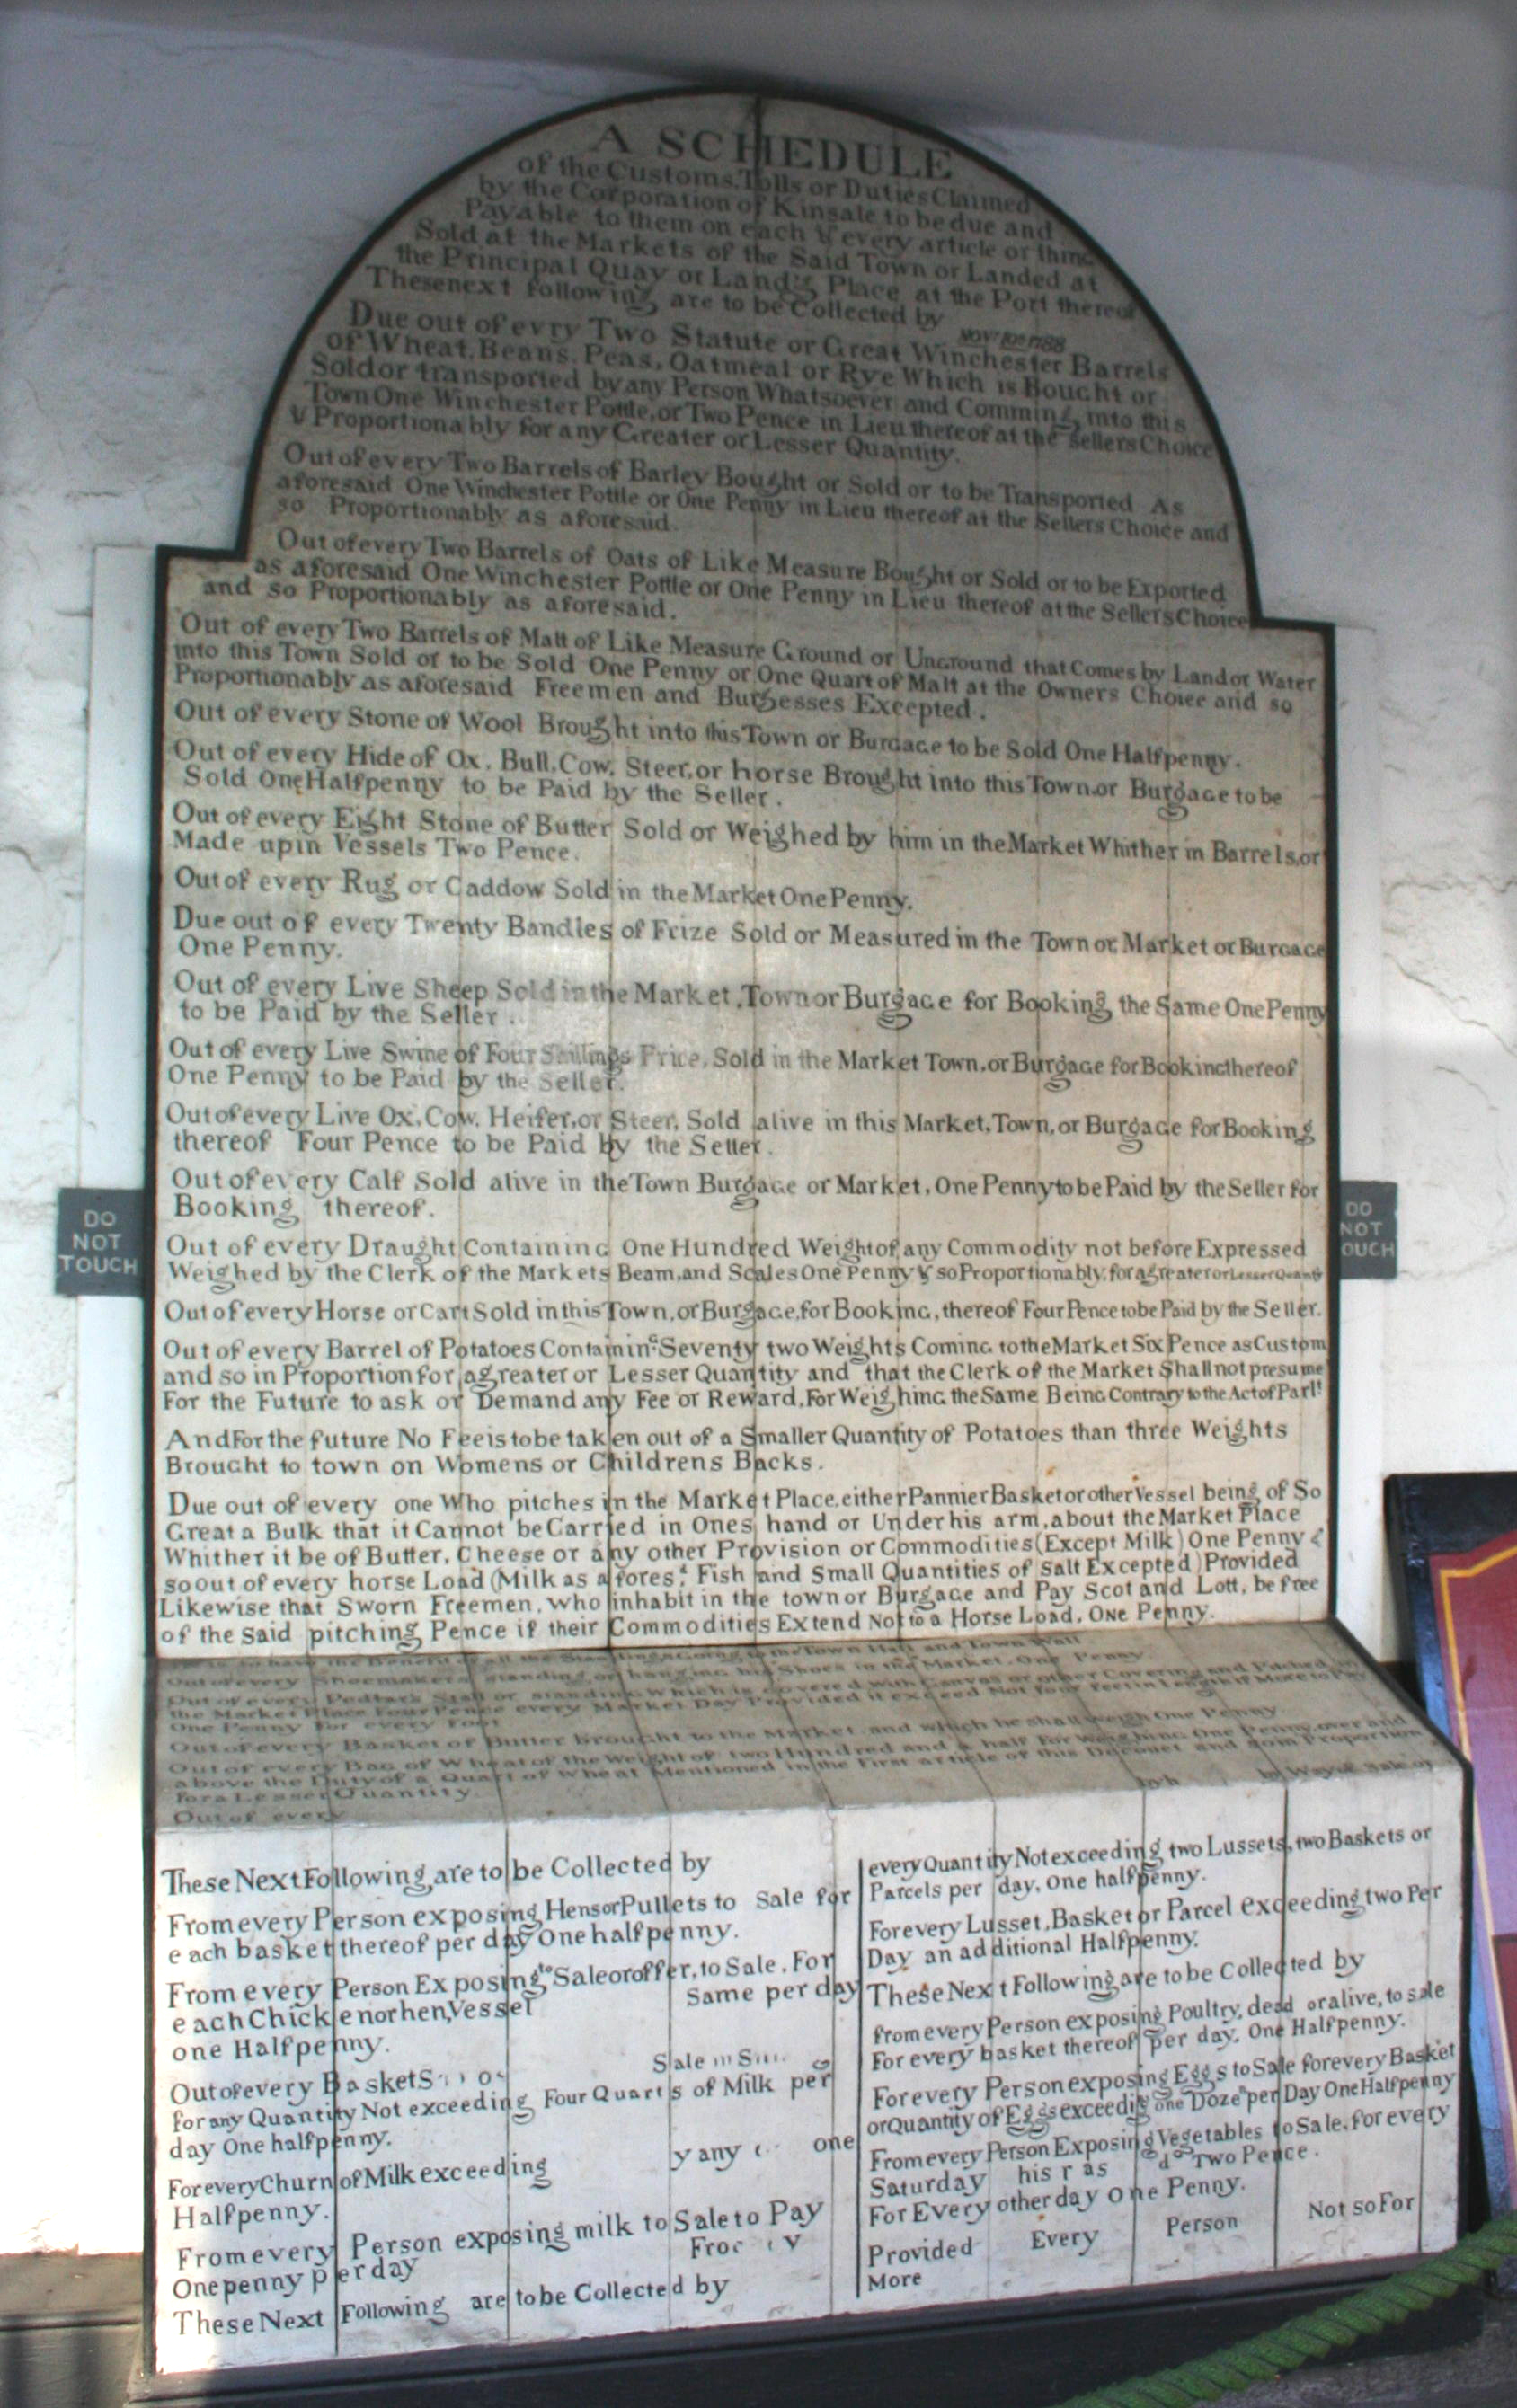 A SCHEDULE
of the Customs, Tolls or Duties Claimed
by the Corporation of Kinsale to be due and
Payable to them on each & every article or thing
Sold at the Markets of the Said Town or Landed at
the Principal Quay or Land'g Place at the Port thereof
These next following are to be Collected by
Nov 1788
Due out of evry Two Statute or Great Winchester Barrels
of Wheat, Beans, Peas, Oatmeal or Rye Which is Bought or
Sold or transported by any Person Whatsoever and Comming into this
Town One Winchester Pottle, or Two Pence in Lieu thereof at the Sellers Choice
& Proportionably for any Greater or Lesser Quantity.
Out of every Two Barrels of Barley Bought or Sold or to be Transported As
aforesaid One Winchester Pottle or One Penny in Lieu thereof at the Sellers Choice and
so Proportionably as aforesaid.
Out of every Two Barrels of Oats of Like Measure Bought or Sold or to be Exported
as aforesaid One Winchester Pottle or One Penny in Lieu thereof at the Sellers Choice
and so Proportionably as aforesaid.
Out of every Two Barrels of Malt of Like Measure Ground or Unground that Comes by Land or Water
into this Town Sold or to be Sold One Penny or One Quart of Malt at the Owners Choice and so
Proportionably as aforesaid Freemen and Burgesses Excepted.
Out of every Stone of Wool Brought into this Town or Burgage to be Sold One Halfpenny.
Out of every Hide of Ox, Bull, Cow, Steer, or horse Brought into this Town or Burgage to be
Sold One Halfpenny to be Paid by the Seller.
Out of every Eight Stone of Butter Sold or Weighed by him in the Market Whither in Barrels, or
Made up in Vessels Two Pence.
Out of every Rug or Caddow Sold in the Market One Penny.
Due out of every Twenty Bandles of Frize Sold or Measured in the Town or Market or Burgage
One Penny.
Out of every Live Sheep Sold in the Market, Town or Burgage for Booking the Same One Penny
to be Paid by the Seller.
Out of every Live Swine of Four Shillings Price, Sold in the Market Town, or Burgage for Booking thereof
One Penny to be Paid by the Seller.
Out of every Live Ox, Cow, Heifer, or Steer, Sold alive in this Market, Town, or Burgage for Booking
thereof Four Pence to be Paid by the Seller.
Out of every Calf Sold alive in the Town Burgage or Market, One Penny to be Paid by the Seller for
Booking thereof.
Out of every Draught Containing One Hundred Weight of any Commodity not before Expressed
Weighed by the Clerk of the Markets Beam, and Scales One Penny & so Proportionably, for a greater or Lesser Quantity
Out of every Horse or Cart Sold in this Town, or Burgage, for Booking, thereof Four Pence to be Paid by the Seller.
Out of every Barrel of Potatoes Containing Seventy two Weights Coming to the Market Six Pence as Custom
and so in Proportion for a greater or Lesser Quantity and that the Clerk of the Market Shall not presume
For the Future to ask or Demand any Fee or Reward, For Weighing the Same Being Contrary to the Act of Parlt
And For the future No Fee is to be taken out of a Smaller Quantity of Potatoes than three Weights
Brought to town on Womens or Childrens Backs.
Due out of every one Who pitches in the Market Place, either Pannier Basket or other Vessel being of So
Great a Bulk that it Cannot be Carried in Ones hand or Under his arm, about the Market Place
Whither it be of Butter, Cheese or any other Provision or Commodities (Except Milk) One Penny &
so out of every horse Load (Milk as afores.d Fish and Small Quantities of Salt Excepted) Provided
Likewise that Sworn Freemen, who inhabit in the town or Burgage and Pay Scot and Lott, be free
of the Said pitching Pence if their Commodities Extend Not to a Horse Load, One Penny.
to have the Benefit of all the Standings to the Town Hall and Town Wall
Out of every Shoemakers standing, or hanging his Shoes in the Market, One Penny.
Out of every Pedlars Stall or standing Which is Covered With Canvas or other Covering and Pitched in
the Market Place Four Pence every Market Day Provided it exceed Not four feet in Length if More to Pay
One Penny for every Foot
Out of every Basket of Butter brought to the Market and which he shall weigh One Penny
Out of every Bag of Wheat of the Weight of two Hundred and a half For Weighing One Penny over and
above the Duty of a Quart of Wheat Mentioned in the First article of this Docquet and so in Proportion
for a Lesser Quantity.
Out of every by Way of Sale of
These Next Following, are to be Collected by
From every Person exposing Hens or Pullets to Sale for
each basket thereof per day One halfpenny.
From every Person Exposing to Sale or offer, to Sale, For
each Chicken or hen, Vessel Same per day
one Halfpenny.
Out of every Basket Sale in
for any Quantity Not exceeding Four Quarts of Milk per
day One halfpenny.
For every Churn of Milk exceeding y any one
Halfpenny.
From every Person exposing milk to Sale to Pay
One penny per day
These Next Following are to be Collected by
every Quantity Not exceeding two Lussets, two Baskets or
Parcels per day, One halfpenny.
For every Lusset, Basket or Parcel exceeding two Per
Day an additional Halfpenny.
These Next Following are to be Collected by
from every Person exposing Poultry, dead or alive, to sale
For every basket thereof per day, One Halfpenny.
For every Person exposing Eggs to Sale for every Basket
or Quantity of Eggs exceedig one Dozen per Day One Halfpenny
From every Person Exposing Vegetables to Sale, for every
Saturday his r as do Two Pence.
For Every other day One Penny.
Provided Every Person Not so For
More
DO
NOT
TOUCH
DO
NOT
OUCH